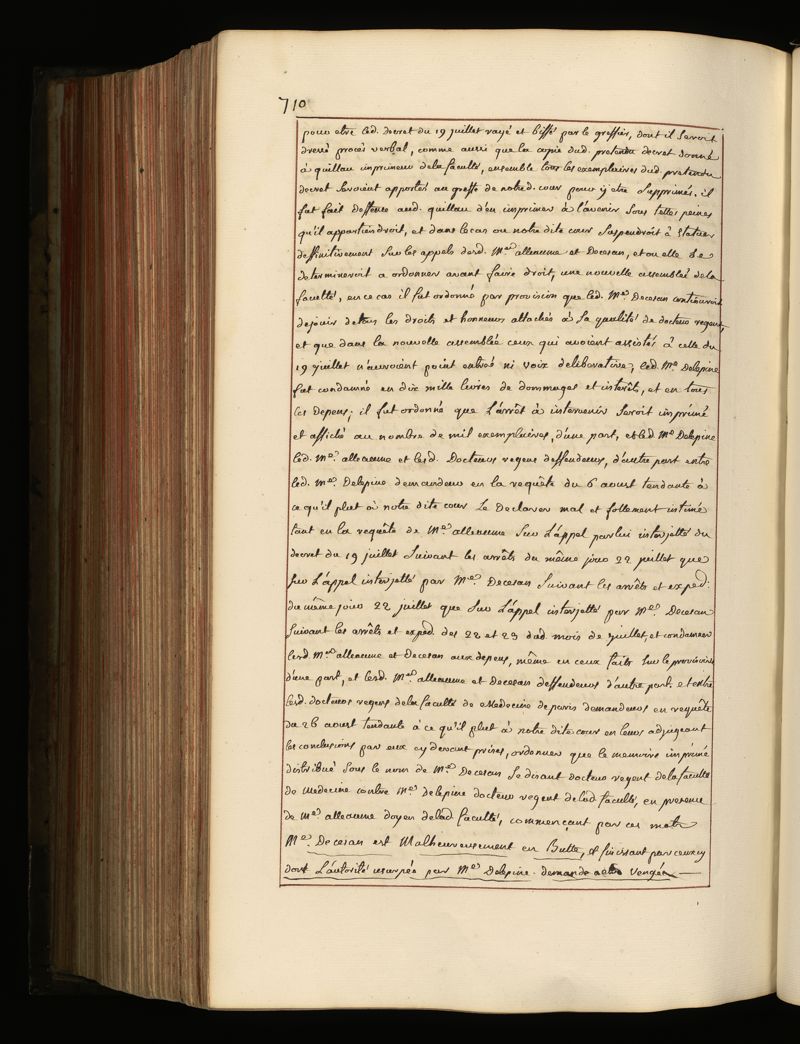 710
pour etre led. decret du 19 juillet rayé et biffé par le greffier, dont il seroit
dressé procés verbal, comme aussi que la copie dud. pretendu decret donné
à quillau imprimeur dela faculté, ensemble tous les exemplaires dud. pretendu
decret seroient apportés au greffe de notred. cour pour y etre supprimés. il
fut fait deffense aud. quillau d'en imprimer à l'avenir sous telles peines
qu'il appartiendroit, et dans le cas ou notre dite cour suspendroit à statuer
deffinitivement sur les appels desd. Mes. alleaume et Decesan, et ou elle se
determineroit a ordonner avant faire droit, une nouvelle assemblée dela
faculté, en ce cas il fut ordonné par provision que led. Me. Decesan continueroit
de jouir de tous les droits et honneurs attachés à sa qualité de docteur regent,
et que dans la nouvelle assemblée ceux qui avoient assistés à celle du
19 juillet n'auroient point entrée ni voix deliberative, led. Me. Delepine
fut condamné en dix mille livres de dommages et interêts, et en tous
les depens; il fut ordonné que l'arrêt à intervenir seroit imprimé
et affiché au nombre de mil exemplaires, d'une part, et led. Me. Delepine
led. Me. alleaume et lesd. Docteurs regens deffendeurs, d'autre part entre
led. Me. Delepine demandeur en la requête du 6 aoust tendante à
ce qu'il plut à notre dite cour le declarer mal et follement intimé
tant en la requête de Me. alleaume sur l'appel par lui interjetté du
decret du 19 juillet suivant les arrêts du même jour 22 juillet que
sur l'appel interjetté par Me. Decesan suivant les arrêts et exped.
du même jour 22 juillet que sur l'appel interjetté par Me. Decesan
suivant les arrêts et exped. des 22 et 23 dud. mois de juillet, et condamner
lesd. Mes. alleaume et Decesan aux depens, même en ceux faits sur le provisoire
d'une part, et lesd. Mes. alleaume et Decesan deffendeurs d'autre part. et entre
lesd. docteurs regens dela faculté de Medecine de paris demandeurs en requête
du 26 aoust tendante à ce qu'il plut à notre dite cour en leurs adjugeant
les conclusions par eux cy devant prises, ordonner que le memoire imprimé
distribué sous le nom de Me. Decesan se disant docteur regent dela faculté
de Medecine contre Me. delepine docteur regent delad. faculté, en presence
de Me. alleaume doyen delad. faculté, commençant par ces mots
Me. Decesan est Malheureusement en Butte, et finissant par ceux cy
dont l'autorité usurpée par Me. Delepine. demande a etre vengée